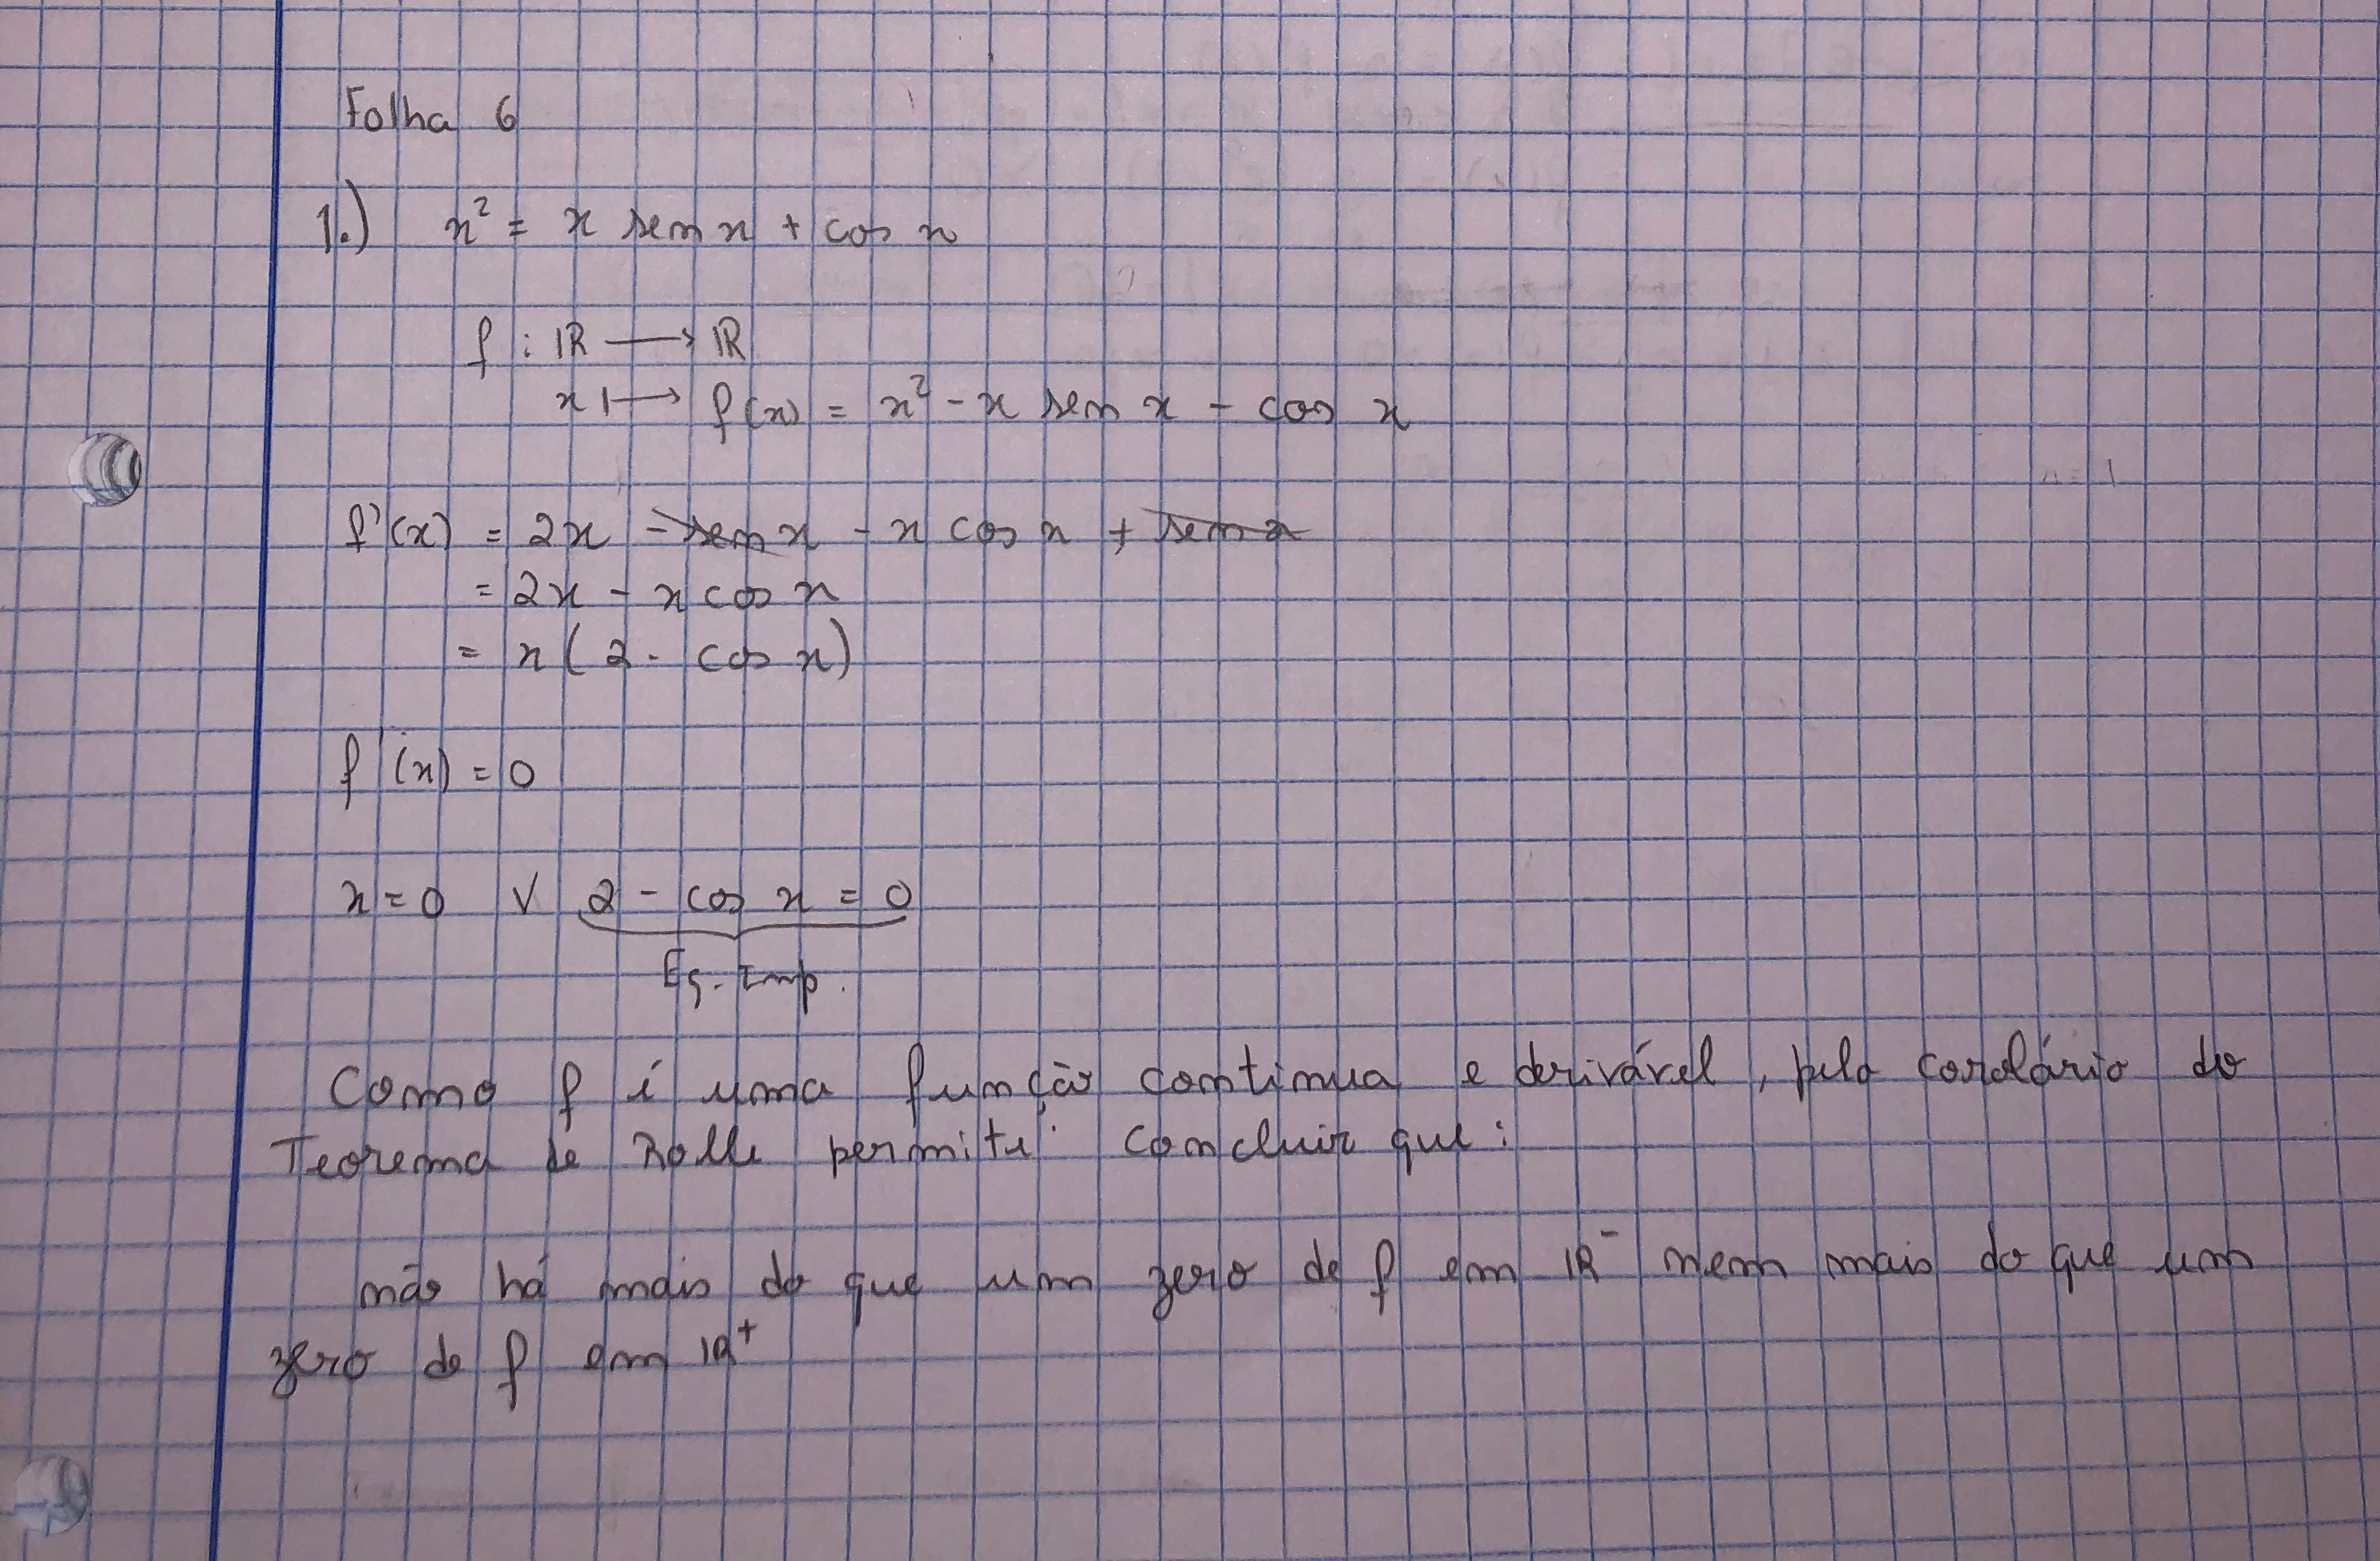 Folha 6
1.) x² = x sen x + cos x
f : ℝ ⟶ ℝ
x ⟼ f(x) = x² - x sen x - cos x
f'(x) = 2x - sen x - x cos x + sen x
= 2x - x cos x
= x(2 - cos x)
f'(x) = 0
x = 0 ∨ 2 - cos x = 0
Eq. Imp.
Como f é uma função continua e derivável, pelo corolário do
Teorema de Rolle permite concluir que:
não há mais do que um zero de f em ℝ⁻ nem mais do que um
zero de f em ℝ⁺